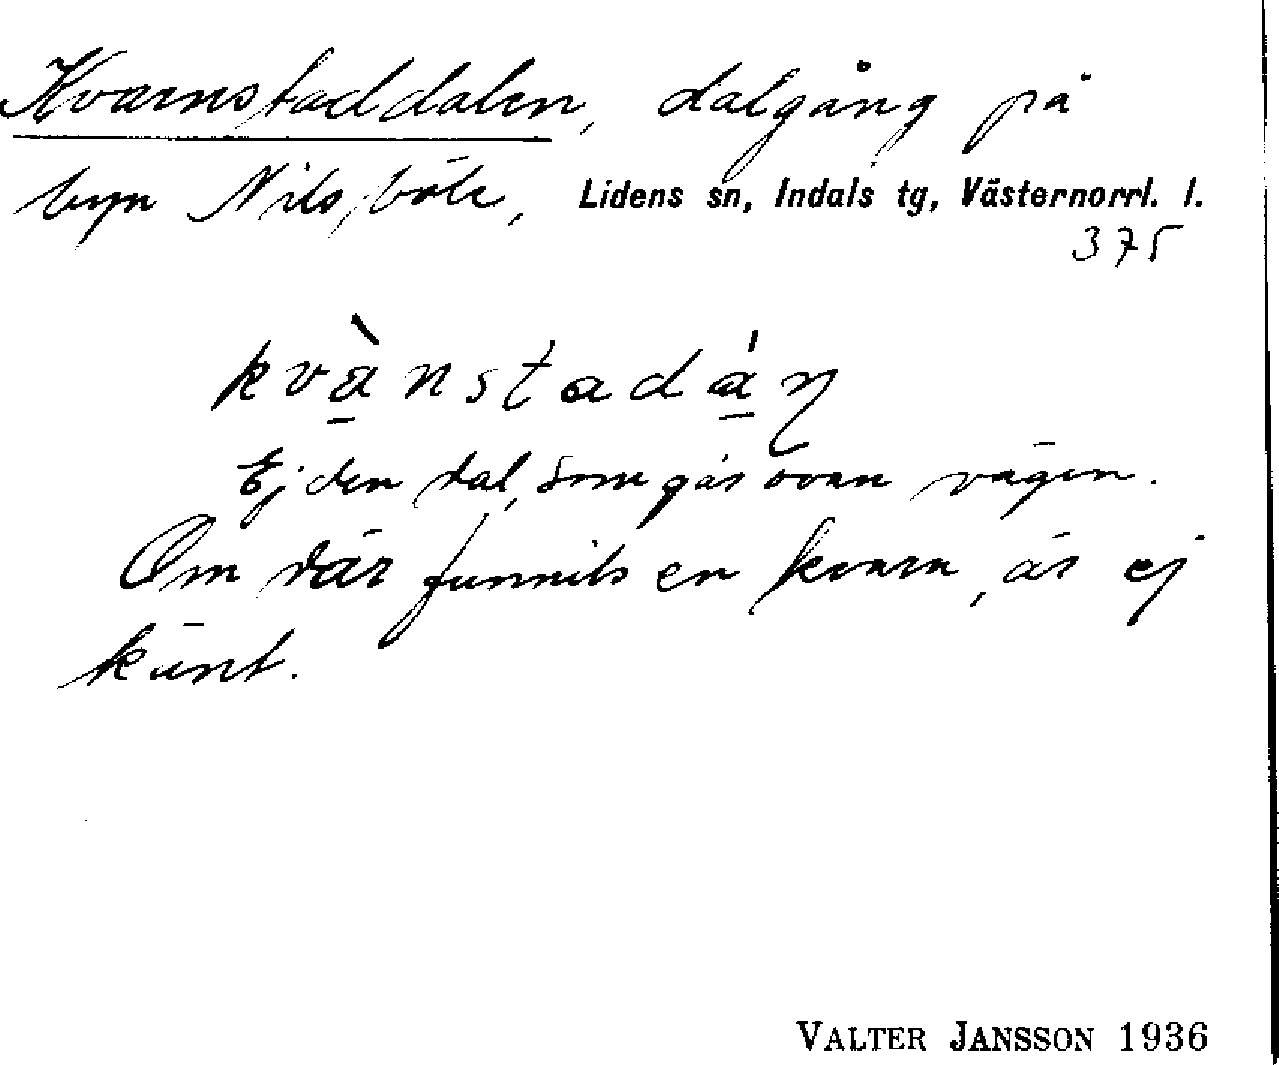 Kvarnstaddalen, dalgång på
byn Nilsböle, Lidens sn, Indals tg, Västernorrl. l.
375
kvànstadáŋ
Ej den dal, som går ovan vägen.
Om där funnits en kvarn, är ej
känt.
VALTER JANSSON 1936